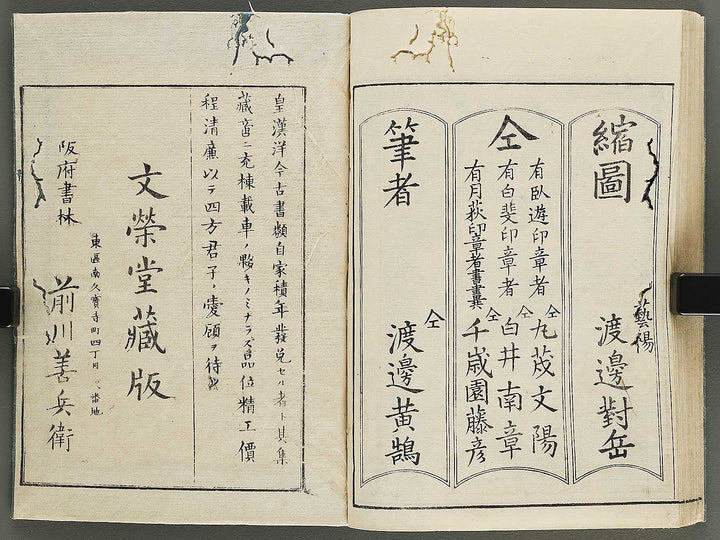 縮圖
藝陽
渡邊對岳
仝
有臥遊印章者
仝
九茂文陽
有白斐印章者
仝
白井南章
有月荻印章者書畫
仝
千歳園藤彦
筆者
仝
渡邊黄鵠
皇漢洋今古書類自家積年發兌セル者ト其集
藏畜ニ充棟載車ノ夥キノミナラズ品位精工價
程清廉以テ四方君子ノ愛顧ヲ待
文榮堂藏版
東區南久寶寺町四丁目
番地
阪府書林
前川善兵衛